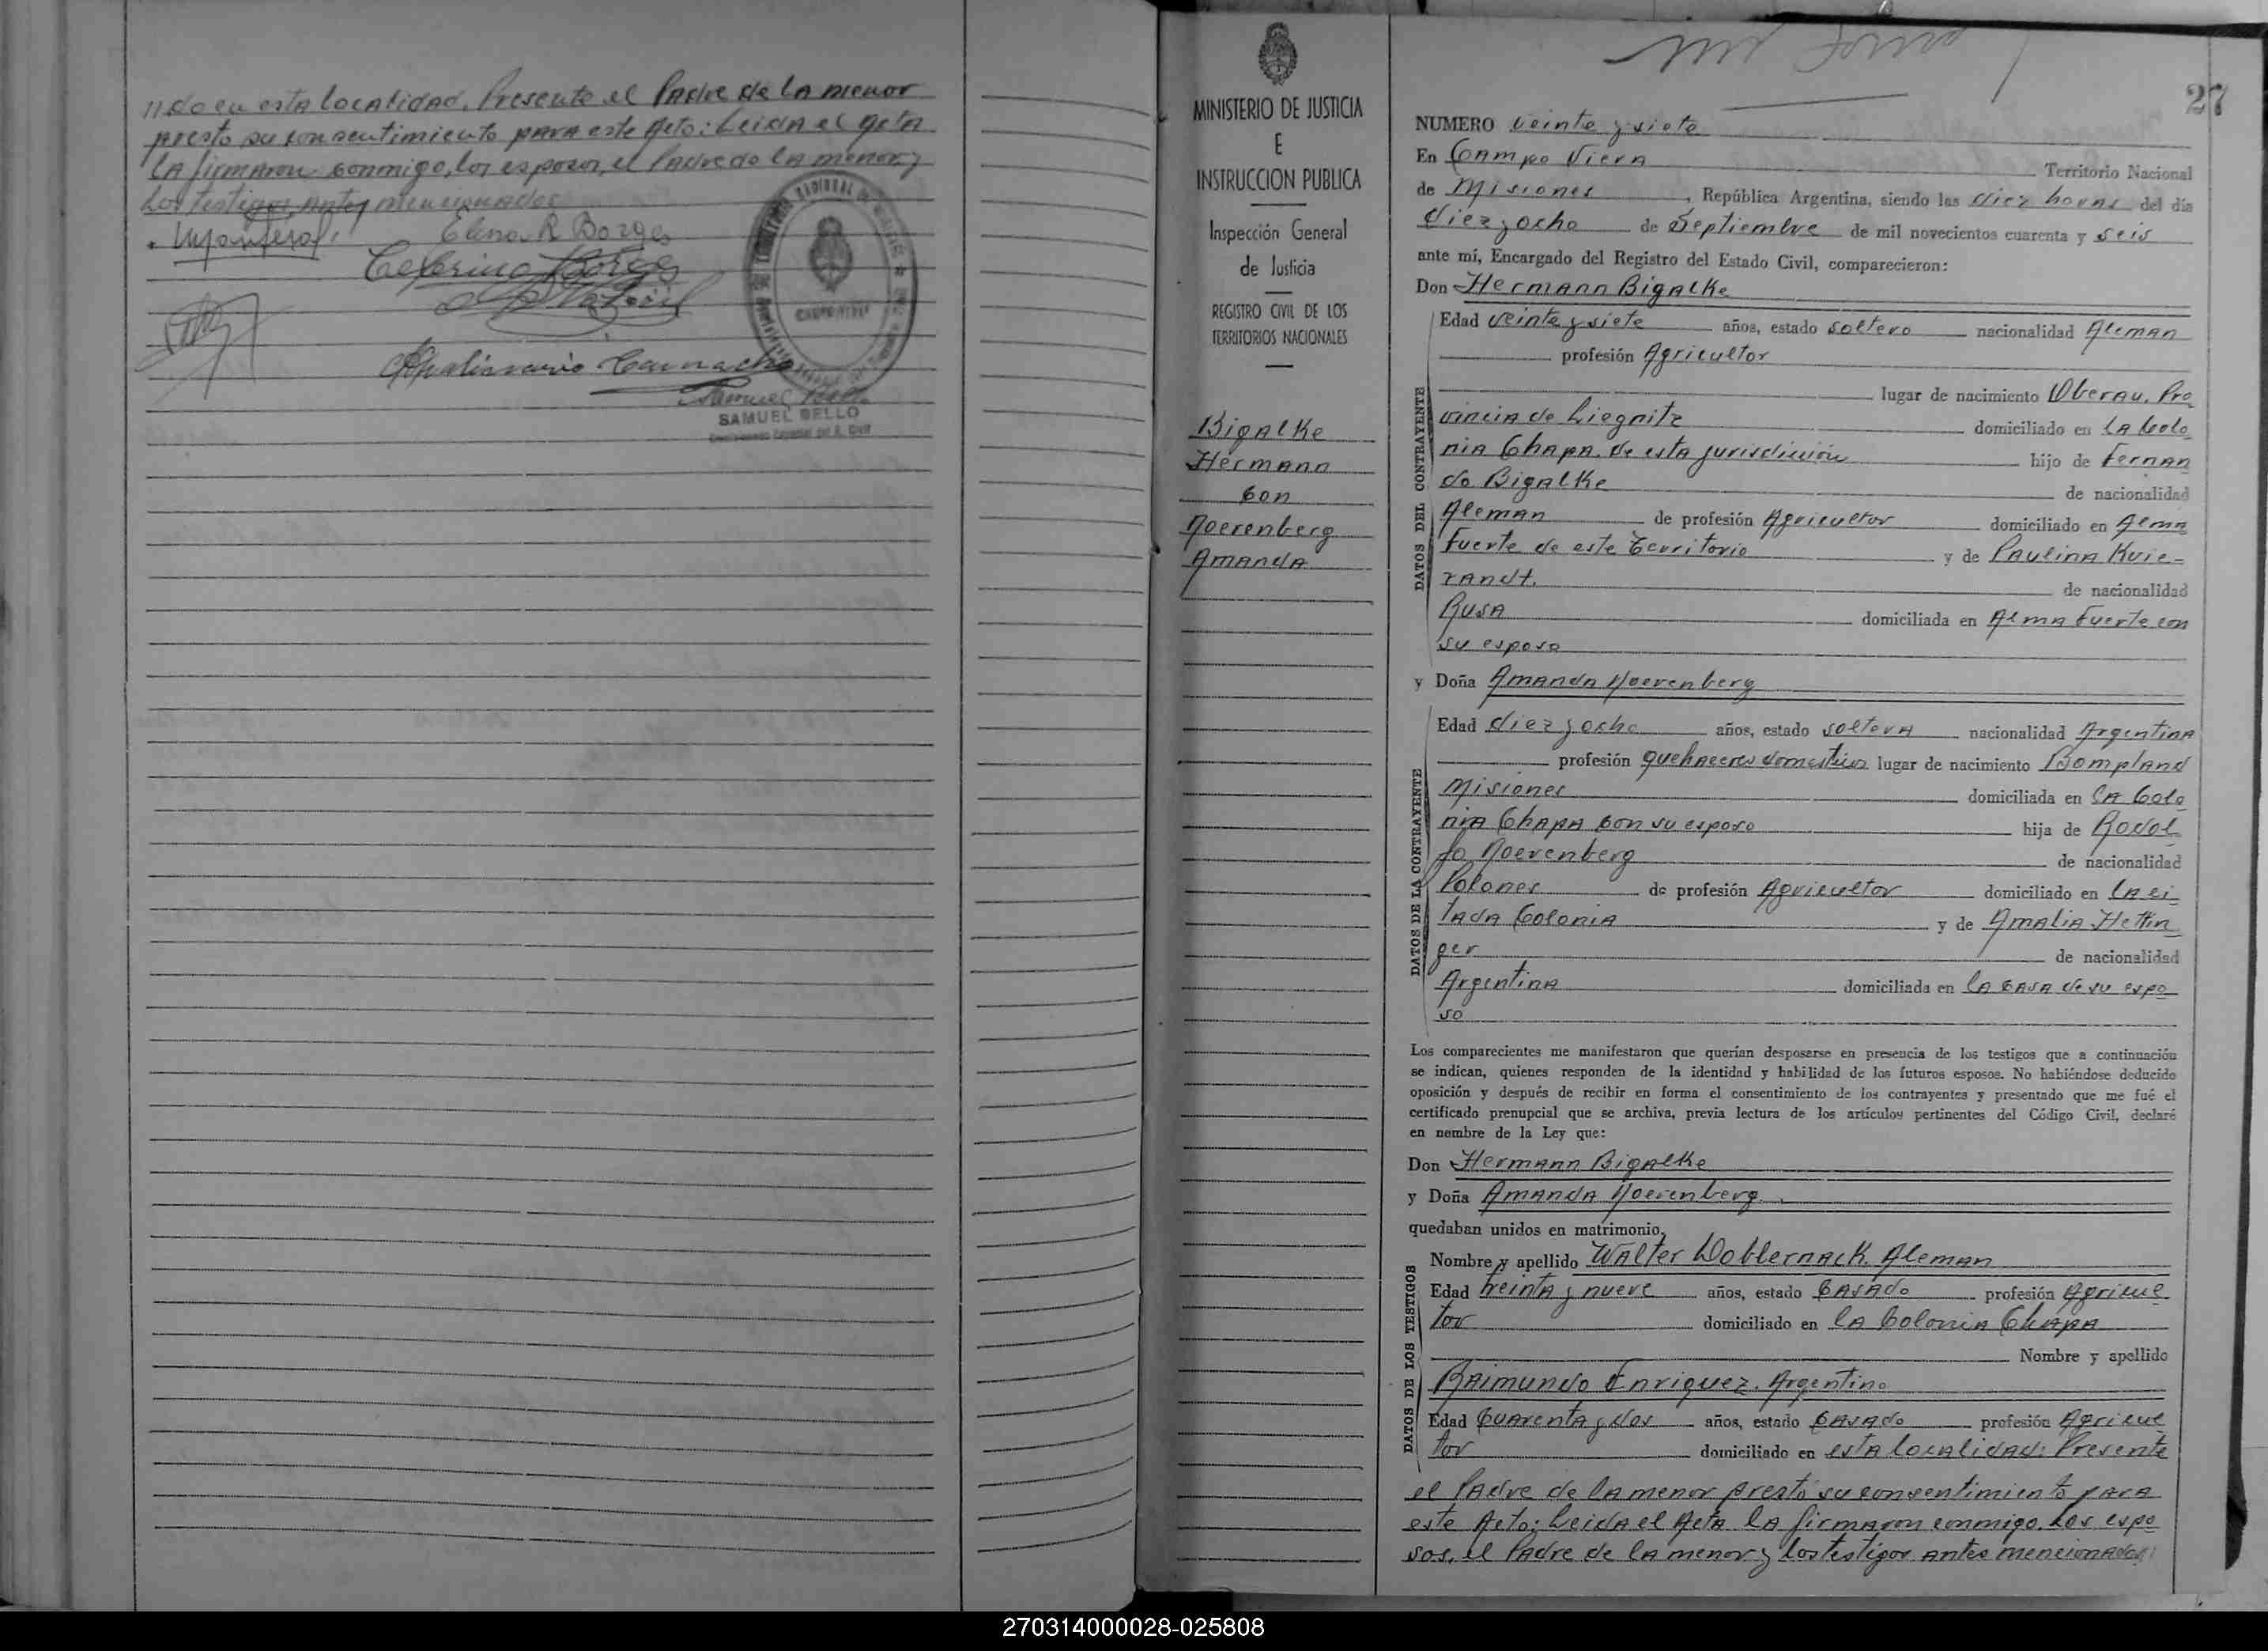 //do en esta localidad. Presente el Padre de la menor
presto su consentimiento para este Acto: Leida el Acta
la firmaron conmigo, los esposos, el Padre de la menor y
los testigos antes mencionados
Elena R Borges
Ceferino Borges
Camacho
Samuel Bello
SAMUEL BELLO
MINISTERIO DE JUSTICIA
E
INSTRUCCION PUBLICA
Inspección General
de Justicia
REGISTRO CIVIL DE LOS
TERRITORIOS NACIONALES
Bigalke
Hermann
con
Noerenberg
Amanda
27
NUMERO veinte y siete
En Campo Viera Territorio Nacional
de Misiones, República Argentina, siendo las diez horas del día
diez y ocho de Septiembre de mil novecientos cuarenta y seis
ante mí, Encargado del Registro del Estado Civil, comparecieron:
Don Hermann Bigalke
DATOS DEL CONTRAYENTE
Edad veinte y siete años, estado soltero nacionalidad Aleman
profesión Agricultor
lugar de nacimiento Oberau, Pro
vincia de Liegnitz domiciliado en la Colo
nia Chapa. de esta jurisdicción hijo de Fernan
do Bigalke de nacionalidad
Aleman de profesión Agricultor domiciliado en Alma
fuerte de este territorio y de Paulina Krie-
randt. de nacionalidad
Rusa domiciliada en Alma Fuerte con
su esposo
y Doña Amanda Noerenberg
DATOS DE LA CONTRAYENTE
Edad diez y ocho años, estado soltera nacionalidad Argentina
profesión quehaceres domesticos lugar de nacimiento Bompland
Misiones domiciliada en la Colo
nia Chapa con su esposo hija de Rodol
fo Noerenberg de nacionalidad
Polones de profesión Agricultor domiciliado en la ci-
tada Colonia y de Amalia Hettin
ger de nacionalidad
Argentina domiciliada en la casa de su espo
so
Los comparecientes me manifestaron que querían desposarse en presencia de los testigos que a continuación
se indican, quienes responden de la identidad y habilidad de los futuros esposos. No habiéndose deducido
oposición y después de recibir en forma el consentimiento de los contrayentes y presentado que me fué el
certificado prenupcial que se archiva, previa lectura de los artículos pertinentes del Código Civil, declaré
en nombre de la Ley que:
Don Hermann Bigalke
y Doña Amanda Noerenberg.
quedaban unidos en matrimonio.
DATOS DE LOS TESTIGOS
Nombre y apellido Walter Doblernack. Aleman
Edad treinta y nueve años, estado Casado profesión Agricul
tor domiciliado en la Colonia Chapa
Nombre y apellido
Raimundo Enriquez. Argentino
Edad Cuarenta y dos años, estado Casado profesión Agricul
tor domiciliado en esta localidad: Presente
el Padre de la menor prestó su consentimiento para
este Acto: Leida el Acta la firmaron conmigo. Los espo
sos, el Padre de la menor y los testigos antes mencionados
270314000028-025808